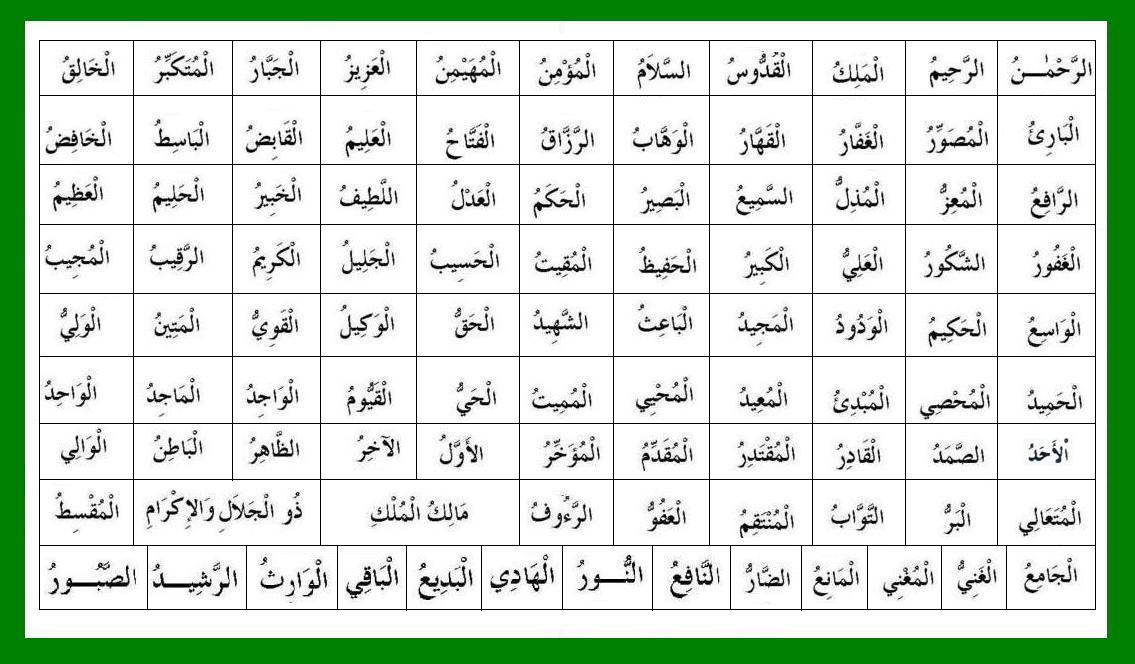 الرَّحْمٰـــنُ الرَّحِيمُ الْمَلِكُ الْقُدُّوسُ السَّلاَمُ الْمُؤْمِنُ الْمُهَيْمِنُ الْعَزِيزُ الْجَبَّارُ الْمُتَكَبِّرُ الْخَالِقُ
الْبَارِئُ الْمُصَوِّرُ الْغَفَّارُ الْقَهَّارُ الْوَهَّابُ الرَّزَّاقُ الْفَتَّاحُ الْعَلِيمُ الْقَابِضُ الْبَاسِطُ الْخَافِضُ
الرَّافِعُ الْمُعِزُّ الْمُذِلُّ السَّمِيعُ الْبَصِيرُ الْحَكَمُ الْعَدْلُ اللَّطِيفُ الْخَبِيرُ الْحَلِيمُ الْعَظِيمُ
الْغَفُورُ الشَّكُورُ الْعَلِيُّ الْكَبِيرُ الْحَفِيظُ الْمُقِيتُ الْحَسِيبُ الْجَلِيلُ الْكَرِيمُ الرَّقِيبُ الْمُجِيبُ
الْوَاسِعُ الْحَكِيمُ الْوَدُودُ الْمَجِيدُ الْبَاعِثُ الشَّهِيدُ الْحَقُّ الْوَكِيلُ الْقَوِيُّ الْمَتِينُ الْوَلِيُّ
الْحَمِيدُ الْمُحْصِي الْمُبْدِئُ الْمُعِيدُ الْمُحْيِي الْمُمِيتُ الْحَيُّ الْقَيُّومُ الْوَاجِدُ الْمَاجِدُ الْوَاحِدُ
اْلأَحَدُ الصَّمَدُ الْقَادِرُ الْمُقْتَدِرُ الْمُقَدِّمُ الْمُؤَخِّرُ الأَوَّلُ الآخِرُ الظَّاهِرُ الْبَاطِنُ الْوَالِي
الْمُتَعَالِي الْبَرُّ التَّوَّابُ الْمُنْتَقِمُ الْعَفُوُّ الرَّءُوفُ مَالِكُ الْمُلْكِ ذُو الْجَلاَلِ وَالإِكْرَامِ الْمُقْسِطُ
الْجَامِعُ الْغَنِيُّ الْمُغْنِي الْمَانِعُ الضَّارُّ النَّافِعُ النُّـــورُ الْهَادِي الْبَدِيعُ الْبَاقِي الْوَارِثُ الرَّشِيـــدُ الصَّبُـــورُ